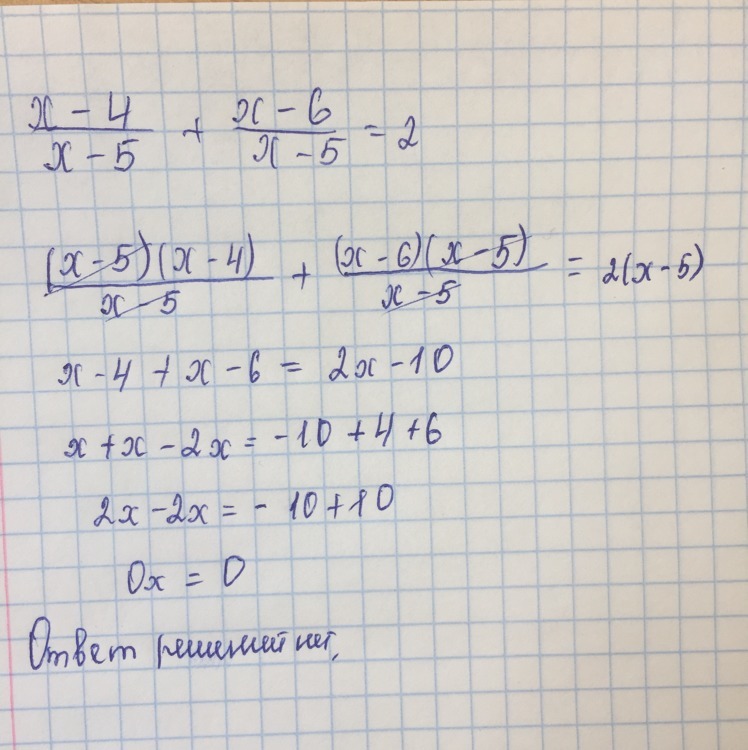 (x - 4)/(x - 5) + (x - 6)/(x - 5) = 2
((x - 5)(x - 4))/(x - 5) + ((x - 6)(x - 5))/(x - 5) = 2(x - 5)
x - 4 + x - 6 = 2x - 10
x + x - 2x = - 10 + 4 + 6
2x - 2x = - 10 + 10
0x = 0
Ответ решений нет.